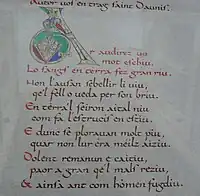 Auter uol en trag saint Daunis.
Ar audirez un
mot esebiu.
Lo sangs en terra fez gran riu.
Non l'ausan sebellir li uiu,
qel fell o ueda per son briu.
En terra l seiron aital niu
com fa l'estrucis en estiu.
E dunc se plorauan molt piu,
quar non lur era meilz aiziu.
Dolent remanun e caitiu,
paor a gran qel mals reziu,
& ainsi ant com hómen fugdiu.